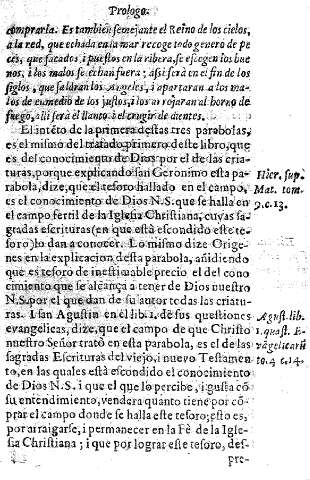 Prologo.
comprarla. Es tambien semejante el Reino de los cielos,
a la red, que echada en la mar recoge todo genero de pe
ces, que sacados, i puestos en la ribera, se escogen los bue
nos, i los malos se echan fuera; asi serà en el fin de los
siglos, que saldràn los Angeles, i apartaran a los ma-
los de en medio de los justos, i los arrojaràn al horno de
fuego, alli serà el llanto, i el crugir de dientes.
El intēto de la primera destas tres parabolas,
es el mismo del tratado primero deste libro, que
es del conocimiento de Dios por el de las cria-
turas, porque explicando san Geronimo esta pa-
rabola, dize, que el tesoro hallado en el campo,
es el conocimiento de Dios N.S. que se halla en
el campo fertil de la Iglesia Christiana, cuyas sa-
gradas escrituras (en que està escondido este te-
soro) lo dan a conocer. Lo mismo dize Orige-
nes en la explicacion desta parabola, añidiendo
que es tesoro de inestimable precio el del cono
cimiento que se alcança a tener de Dios nuestro
N.S. por el que dan de su autor todas las criatu-
ras. I san Agustin en el lib. 1. de sus questiones
evangelicas, dize, que el campo de que Christo
nuestro Señor tratò en esta parabola, es el de las
sagradas Escrituras del viejo, i nuevo Testamen
to, en las quales està escondido el conocimiento
de Dios N.S. i que el que lo percibe, i gusta cō
su entendimiento, vendera quanto tiene por cō-
prar el campo donde se halla este tesoro; esto es,
por arraigarse, i permanecer en la Fè de la Igle-
sia Christiana; i que por lograr este tesoro, des-
pre-
Hier. sup.
Mat. tom.
9. c. 13.
Agust. lib.
1. quæst. E-
vāgelicarū
to. 4. c. 14.